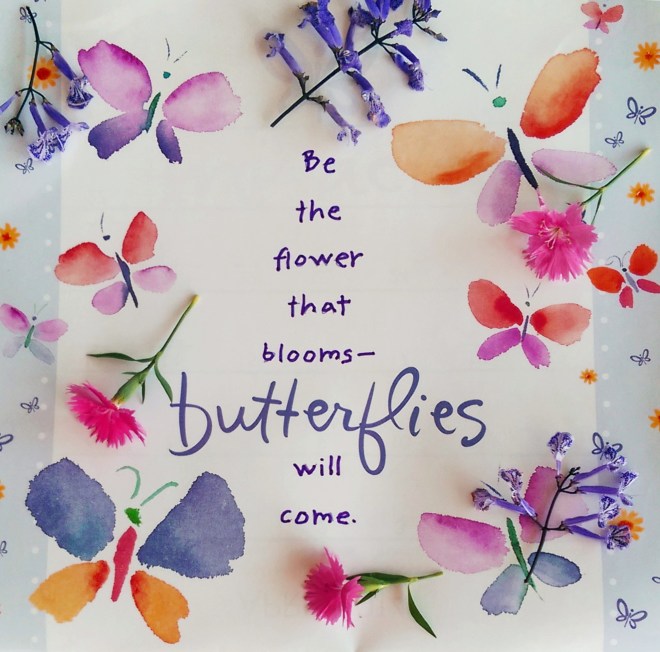 Be
the
flower
that
blooms—
butterflies
will
come.